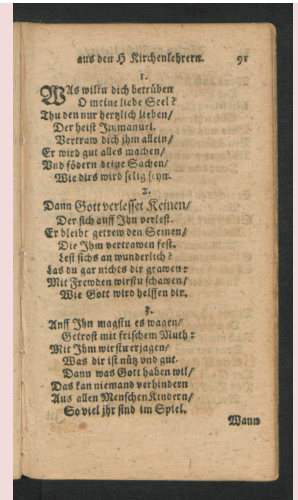 aus den H Kirchenlehrern. 91
1.
WAs wiltu dich betrüben
O meine liebe Seel?
Thu den nur hertzlich lieben/
Der heist Immanuel.
Vertraw dich jhm allein/
Er wird gut alles machen/
Vnd födern deine Sachen/
Wie dirs wird selig seyn.
2.
Dann Gott verlesset Keinen/
Der sich auff Jhn verlest.
Er bleibt getrew den Seinen/
Die Jhm vertrawen fest.
Lest sichs an wunderlich?
Las du gar nichts dir grawen:
Mit Frewden wirstu schawen/
Wie Gott wird helffen dir.
3.
Auff Jhn magstu es wagen/
Getrost mit frischem Muth:
Mit Jhm wirstu erjagen/
Was dir ist nütz vnd gut.
Dann was Gott haben wil/
Das kan niemand verhindern
Aus allen MenschenKindern/
So viel jhr sind im Spiel.
Wann